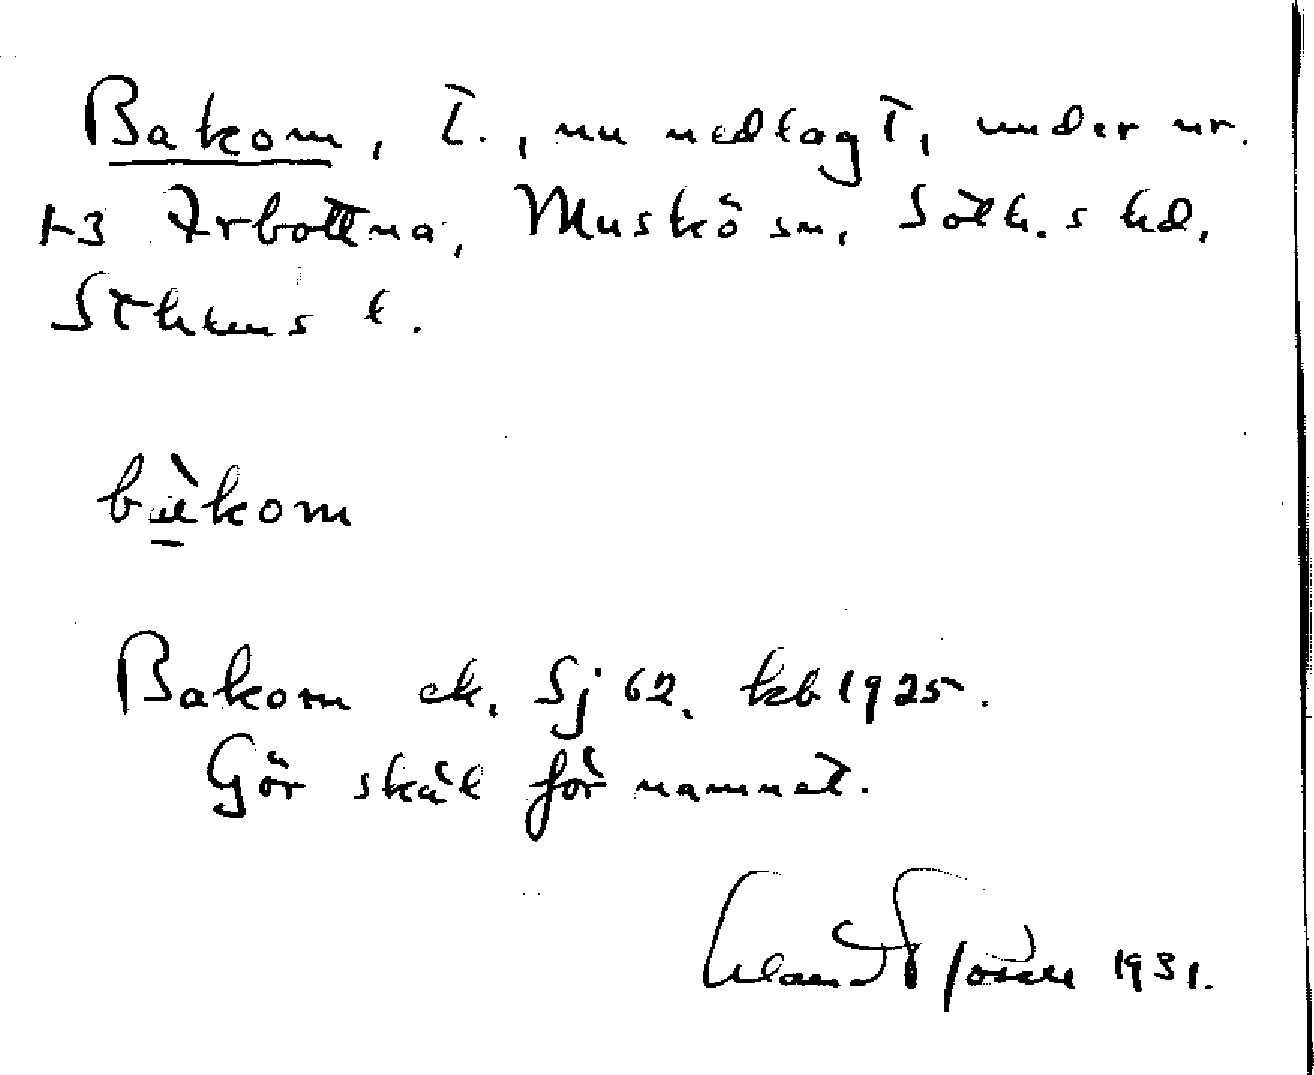 Bakom, t., nu nedlagt, under nr.
1-3 Arbottna, Muskö sn, Soth.s hd,
Sthlms l.
bàkom
Bakom ek. Sj 62. kb 1925.
Gör skäl för namnet.
1931.